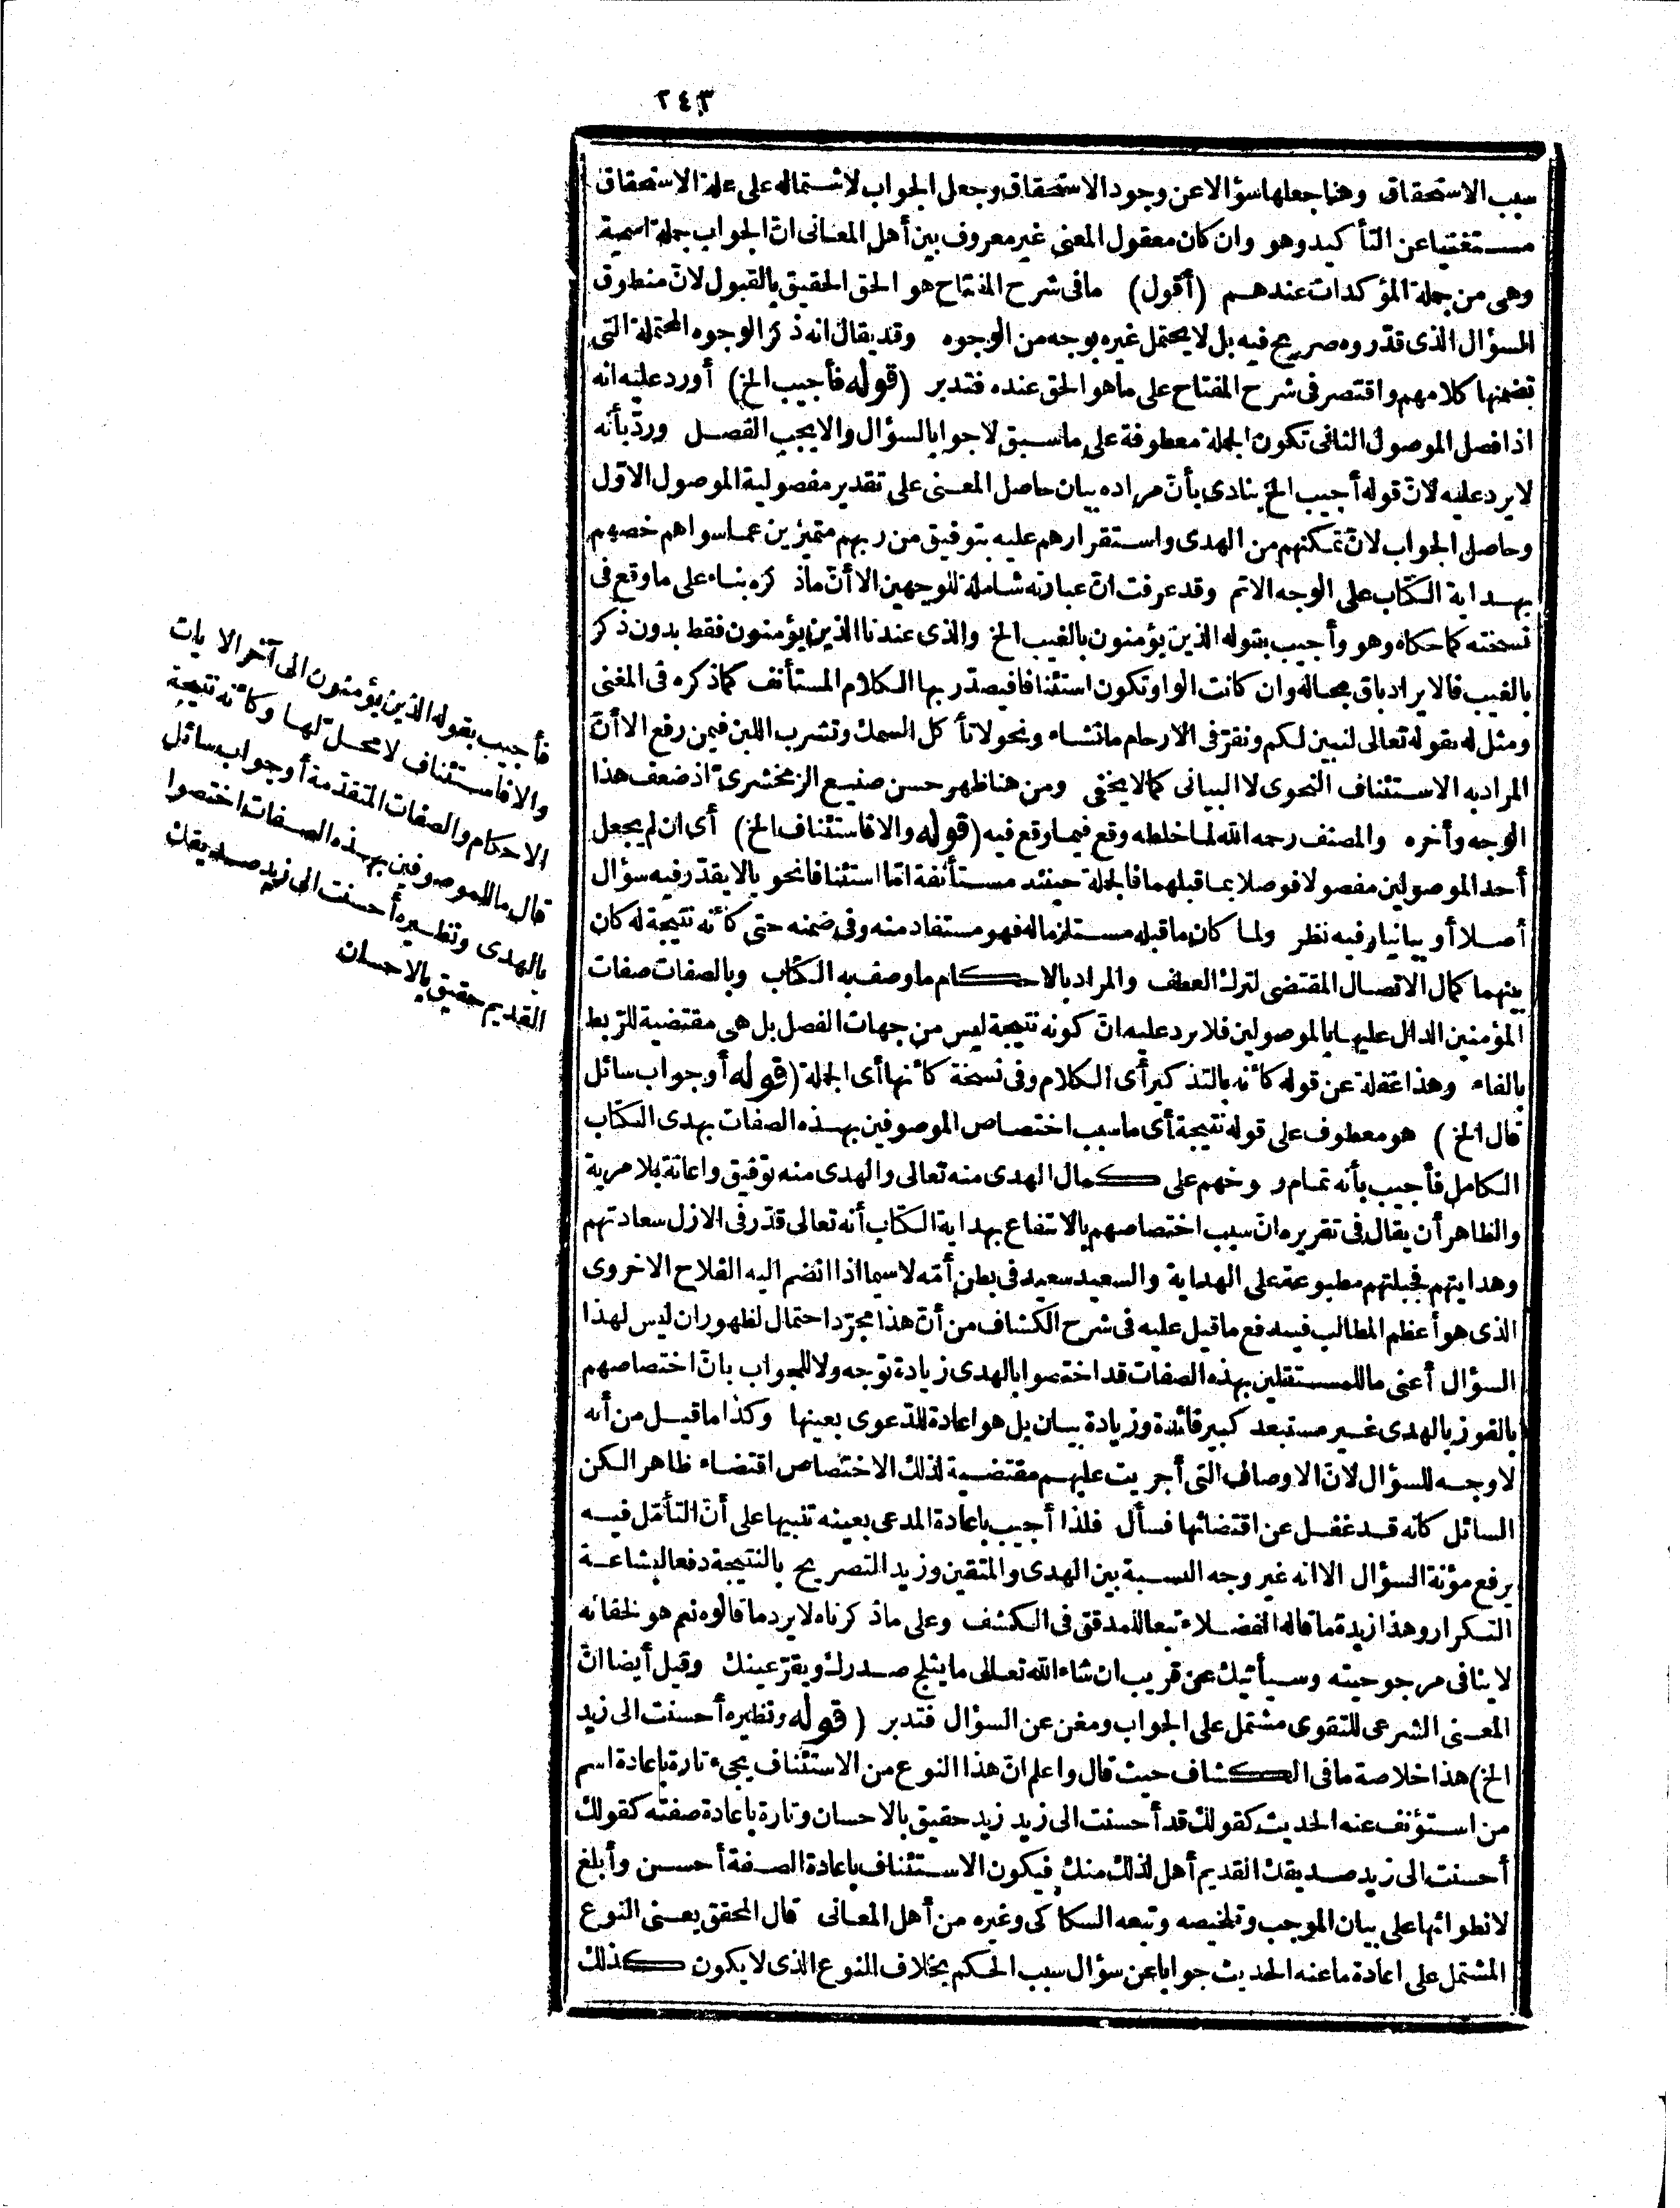 ٢٤٣
سبب الاستحقاق وهنا جعلها سؤالا عن وجود الاستحقاق وجعل الجواب لاشتماله على علة الاستحقاق
مستغنيا عن التأكيد وهو وان كان معقول المعنى غير معروف بين أهل المعانى انّ الجواب جملة اسمية
وهى من جملة المؤكدات عندهم (أقول) مافى شرح المفتاح هو الحق الحقيق بالقبول لانّ منطوق
السؤال الذى قدّروه صريح فيه بل لا يحتمل غيره بوجه من الوجوه وقد يقال انه ذكر الوجوه المحتملة التى
تضمنها كلامهم واقتصر فى شرح المفتاح على ما هو الحق عنده فتدبر (قوله فأجيب الخ) أورد عليه انه
اذا فصل الموصول الثانى تكون الجملة معطوفة على ما سبق لا جوابا لسؤال والا يجب الفصل وردّ بأنه
لا يرد عليه لانّ قوله أجيب الخ ينادى بأنّ مراده بيان حاصل المعنى على تقدير مفصولية الموصول الاوّل
وحاصل الجواب لانّ تمكنهم من الهدى واستقرارهم عليه بتوفيق من ربهم متميزين عما سواهم خصهم
بهداية الكتاب على الوجه الاتم وقد عرفت انّ عبارته شاملة للوجهين الا أنّ ماذكره بناء على ما وقع فى
نسخته كما حكاه وهو وأجيب بقوله الذين يؤمنون بالغيب الخ والذى عندنا الذين يؤمنون فقط بدون ذكر
بالغيب فالايراد باق بحاله وان كانت الواو تكون استئنافا فيصدّر بها الكلام المستأنف كما ذكره فى المغنى
ومثل له بقوله تعالى لنبين لكم ونقرّ فى الارحام ما نشاء ونحو لا تأكل السمك وتشرب اللبن فيمن رفع الا أنّ
المراد به الاستئناف النحوى لا البيانى كما لا يخفى ومن هنا ظهر حسن صنيع الزمخشرىّ اذ ضعف هذا
الوجه وأخره والمصنف رحمه الله لما خلطه وقع فيما وقع فيه (قوله والا فاستئناف الخ) أى ان لم يجعل
أحد الموصولين مفصولا فوصلا بما قبلهما فالجملة حينئذ مستأنفة امّا استئنافا نحويا لا يقدّر فيه سؤال
أصلا أو بيانيا وفيه نظر ولما كان ما قبله مستلزما له فهو مستفاد منه وفى ضمنه حتى كأنه نتيجة له كان
بينهما كمال الاتصال المقتضى لترك العطف والمراد بالاحكام ما وصف به الكتاب وبالصفات صفات
المؤمنين الدال عليها بالموصولين فلا يرد عليه انّ كونه نتيجة ليس من جهات الفصل بل هى مقتضية للربط
بالفاء وهذا غفلة عن قوله كأنه بالتذكير أى الكلام وفى نسخة كأنها أى الجملة (قوله أو جواب سائل
قال الخ) هو معطوف على قوله نتيجة أى ما سبب اختصاص الموصوفين بهذه الصفات بهدى الكتاب
الكامل فأجيب بأنه تمام رسوخهم على كمال الهدى منه تعالى والهدى منه توفيق واعانة بلا مرية
والظاهر أن يقال فى تقريره انّ سبب اختصاصهم بالانتفاع بهداية الكتاب أنه تعالى قدّر فى الازل سعادتهم
وهدايتهم فجبلتهم مطبوعة على الهداية والسعيد سعيد فى بطن أمّه لا سيما اذا انضم اليه الفلاح الاخروى
الذى هو أعظم المطالب فيدفع ما قيل عليه فى شرح الكشاف من أنّ هذا مجرّد احتمال لظهور ان ليس لهذا
السؤال أعنى ما للمستقلين بهذه الصفات قد اختصوا بالهدى زيادة توجه ولا للجواب بانّ اختصاصهم
بالفوز بالهدى غير مستبعد كبير فائدة وزيادة بيان بل هو اعادة للدّعوى بعينها وكذا ما قيل من أنه
لا وجه للسؤال لانّ الاوصاف التى أجريت عليهم مقتضية لذلك الاختصاص اقتضاء ظاهرا لكن
السائل كأنه قد غفل عن اقتضائها فسأل فلذا أجيب باعادة المدعى بعينه تنبيها على أنّ التأمّل فيه
يرفع مؤنة السؤال الا انه غير وجه النسبة بين الهدى والمتقين وزيد التصريح بالنتيجة دفعا لبشاعة
التكرار وهذا زبدة ما قاله الفضلاء تبعا للمدقق فى الكشف وعلى ماذكرناه لا يرد ما قالوه نعم هو لخفائه
لا ينافى مرجوحيته وسيأتيك عن قريب ان شاء الله تعالى ما يثلج صدرك ويقرّ عينك وقيل أيضا انّ
المعنى الشرعى للتقوى مشتمل على الجواب ومغن عن السؤال فتدبر (قوله ونظيره أحسنت الى زيد
الخ) هذا خلاصة ما فى الكشاف حيث قال واعلم انّ هذا النوع من الاستئناف يجىء تارة باعادة اسم
من استؤنف عنه الحديث كقولك قد أحسنت الى زيد زيد حقيق بالاحسان وتارة باعادة صفته كقولك
أحسنت الى زيد صديقك القديم أهل لذلك منك فيكون الاستئناف باعادة الصفة أحسن وأبلغ
لانطوائها على بيان الموجب وتلخيصه وتبعه السكاكى وغيره من أهل المعانى قال المحقق يعنى النوع
المشتمل على اعادة ما عنه الحديث جوابا عن سؤال سبب الحكم بخلاف النوع الذى لا يكون كذلك
فأجيب بقوله الذين يؤمنون الى آخر الآيات
والا فاستئناف لا محل لها وكأنه نتيجة
الاحكام والصفات المتقدّمة أو جواب سائل
قال ما للموصوفين بهذه الصفات اختصوا
بالهدى ونظيره أحسنت الى زيد صديقك
القديم حقيق بالاحسان